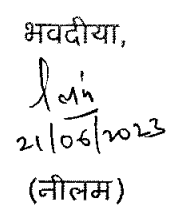 भवदीया,
21/06/2023
(नीलम)